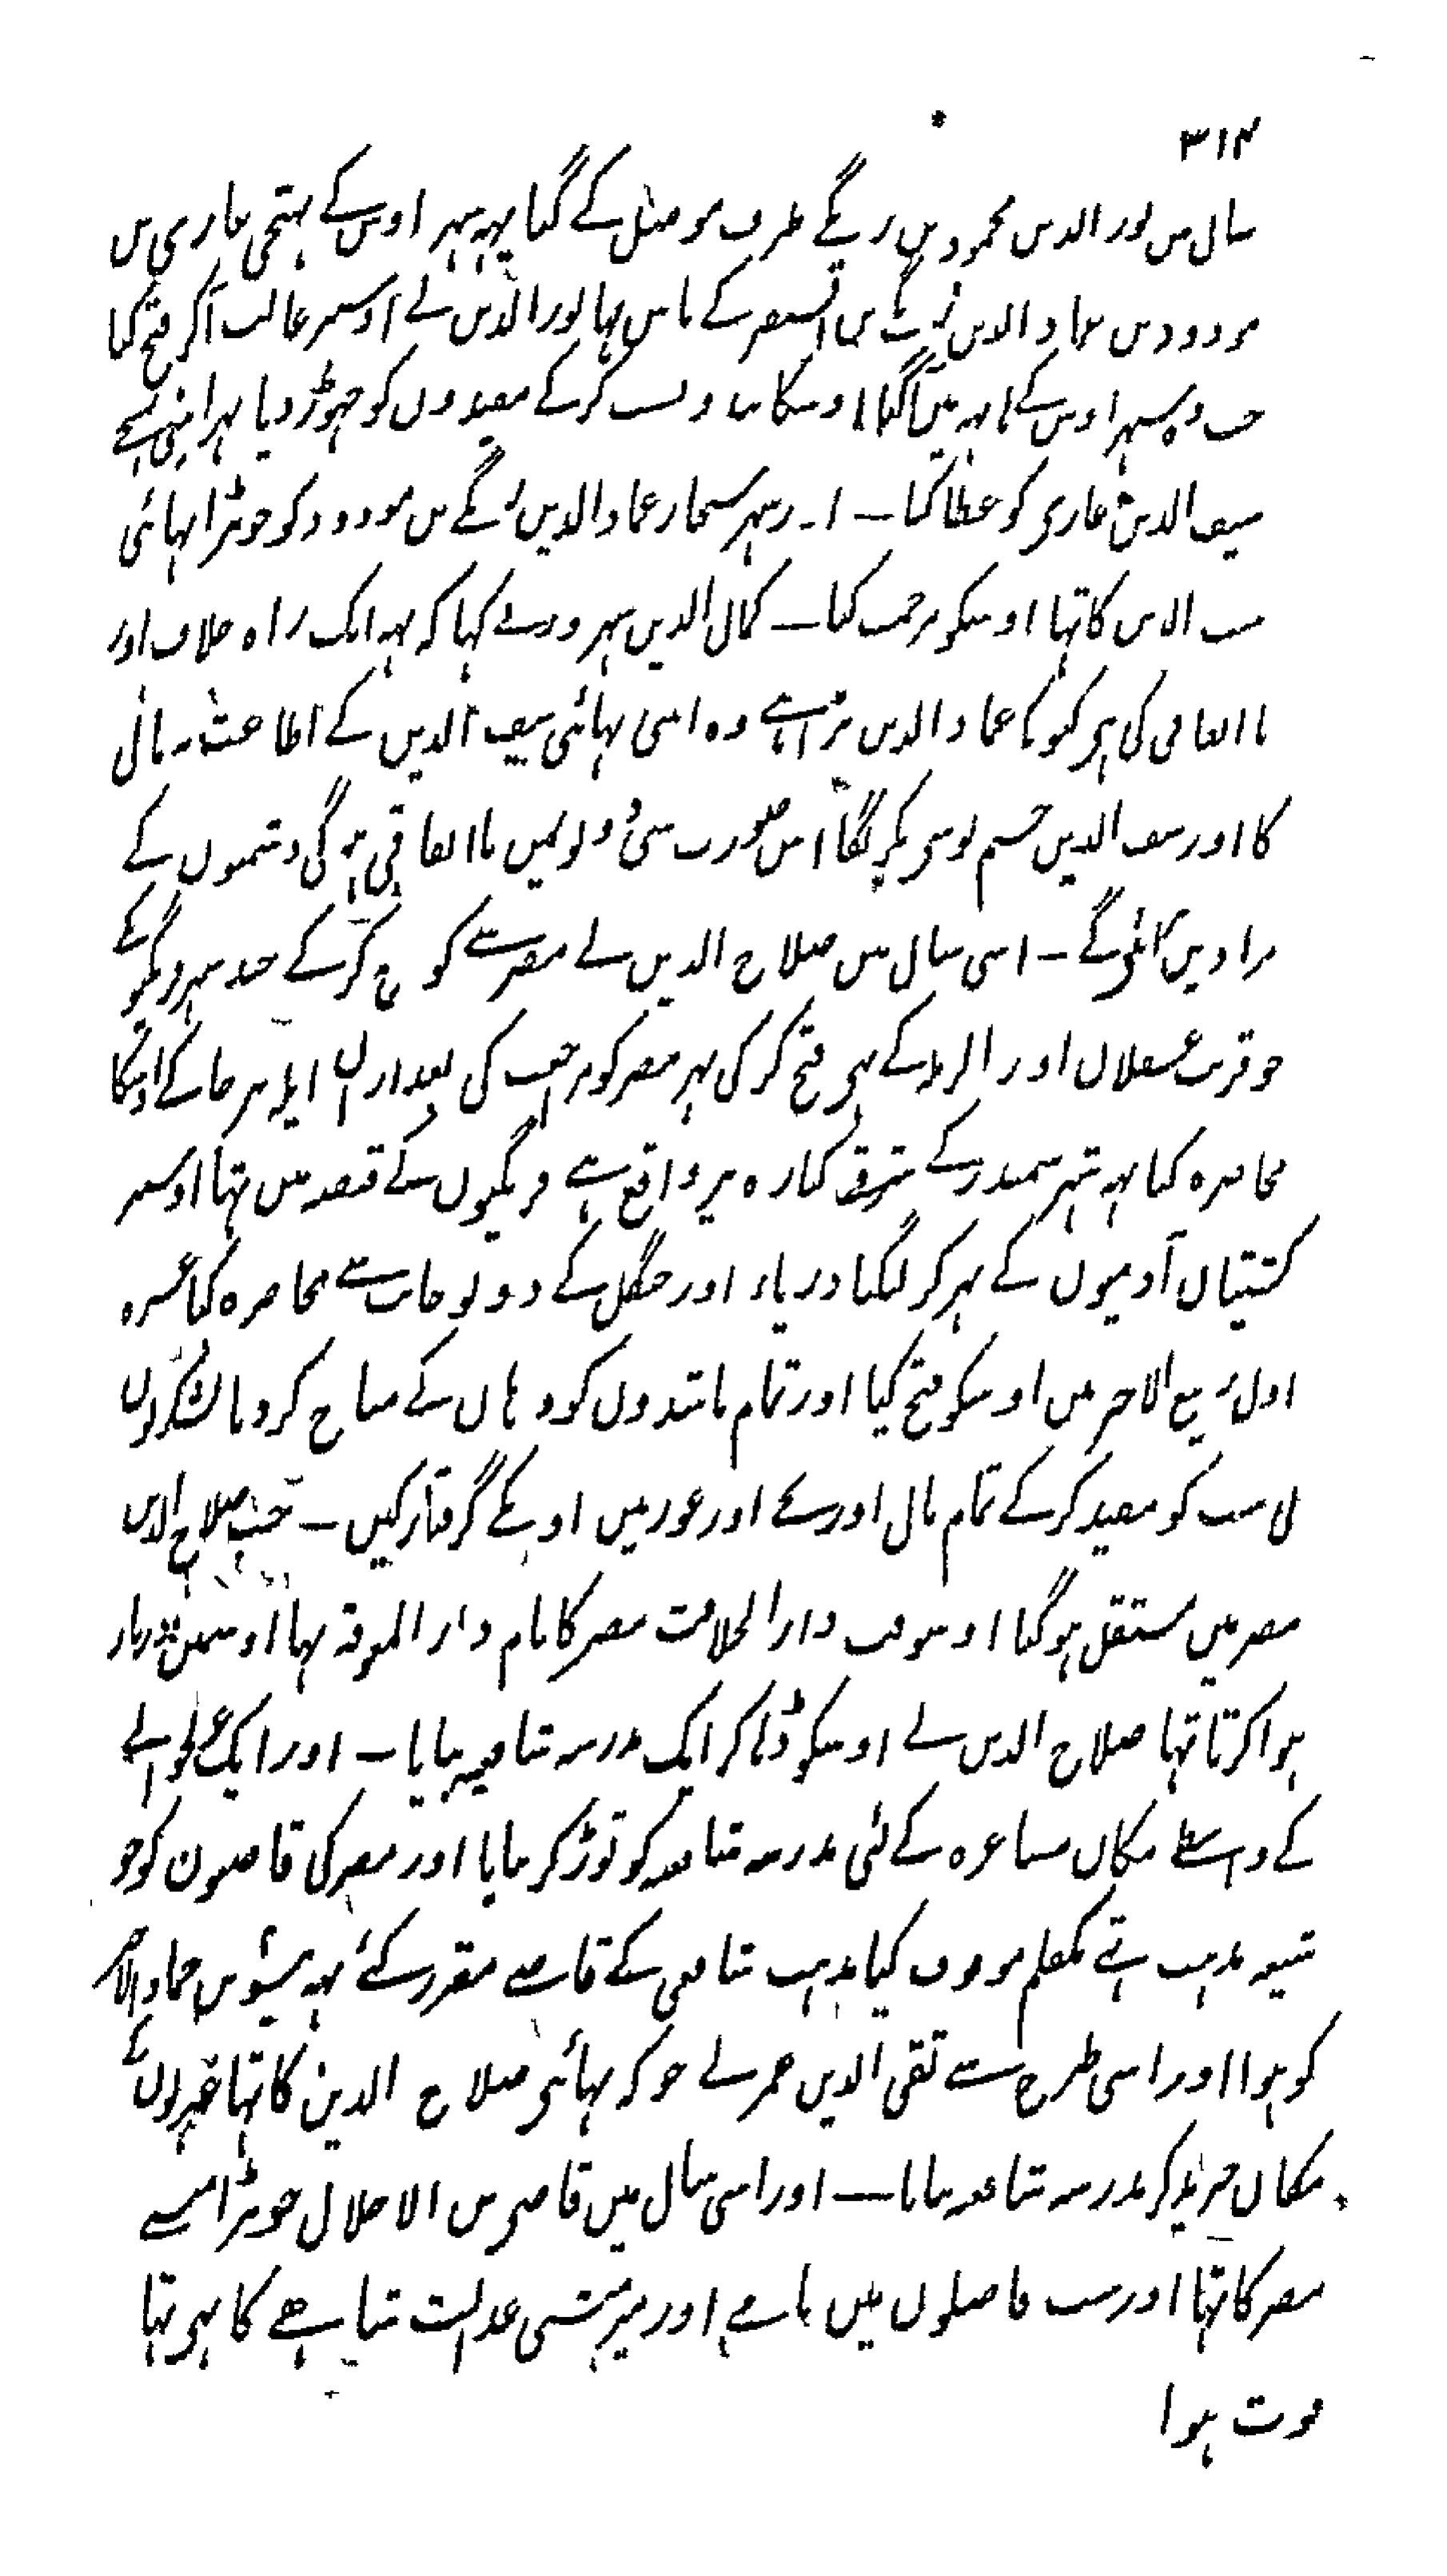 ۳۱۴
سال میں نور الدین محمود بن زنگے طرف موصل کے گیا یہہ شہر اوس کے بہتیجی غازی بن
مودود بن عماد الدین زنگے بن اقسنقر کے پاس تہا نور الدین نے اوسپر غالب آکر فتح کیا
جب وہ شہر اوس کے ہاتہہ میں آگیا اوسکا بند و بست کر کے مقیدوں کو چہوڑ دیا پہر اپنی بہتیجے
سیف الدین غازی کو عطا کیا ــ اور شہر سنجار عماد الدین زنگے بن مودود کو جو بڑا بہائی
سیف الدین کا تہا اوسکو مرحمت کیا ــ کمال الدین شہر زوری نے کہا کہ یہہ ایک راہ خلاف اور
نا اتفاقی کی ہی کیونکہ عماد الدین بڑا ہے وہ اپنی بہائی سیف الدین کے اطاعت نہ مانی
گا اور سیف الدین چشم پوشی نکریگا اس صورت سی دونوں میں نا اتفاقی ہوگی دشمنوں کے
مرادیں ملینگے ــ اسی سال میں صلاح الدین نے مصر سے کوچ کر کے چند شہر فرنگیو کے
جو قریب عسقلان اور الرملہ کے ہی فتح کر کی پہر مصر کو مراجعت کی بعد ازاں ایلہ پر جا کے اوسکا
محاصرہ کیا یہہ شہر سمندر کے شرقی کنارہ پر واقع ہے فرنگیوں کے قبضہ میں تہا اوسپر
کشتیاں آدمیوں کے بہر کر لیگیا دریاء اور جنگل کے دونو جانب سے محاصرہ کیا عشرہ
اول ربیع الآخر میں اوسکو فتح کیا اور تمام باشندوں کو وہاں کے مباح کردیا لشکریوں
نی سب کو مقید کر کے تمام مال اور بچے اور عورتیں اونکے گرفتار کیں ــ جب صلاح الدین
مصر میں مستقل ہوگیا اوسوقت دار الخلافت مصر کا نام دار المعونہ تہا اوسمیں دربار
ہوا کرتا تہا صلاح الدین نے اوسکو ڈہا کر ایک مدرسہ شافعیہ بنایا ــ اور ایک
کے واسطے مکان مشاعرہ کے لئی مدرسہ شافعیہ کو توڑ کر بنایا اور مصر کی قاضیون کو جو
شیعہ مذہب تہے یکقلم موقوف کیا مذہب شافعی کے قاضے مقرر کئے یہہ بیسویں جماد الآخر
کو ہوا اور اسی طرح سے تقی الدین عمر نے جو کہ بہائی صلاح الدین کا تہا
مکان خرید کر مدرسہ شافعیہ بنایا ــ اور اسی سال میں قاضی بن الاخلال جو بڑا امیر
مصر کا تہا اور سب فاضلوں میں نامے اور میر منشی عدالت شاہے کا بہی تہا
فوت ہوا